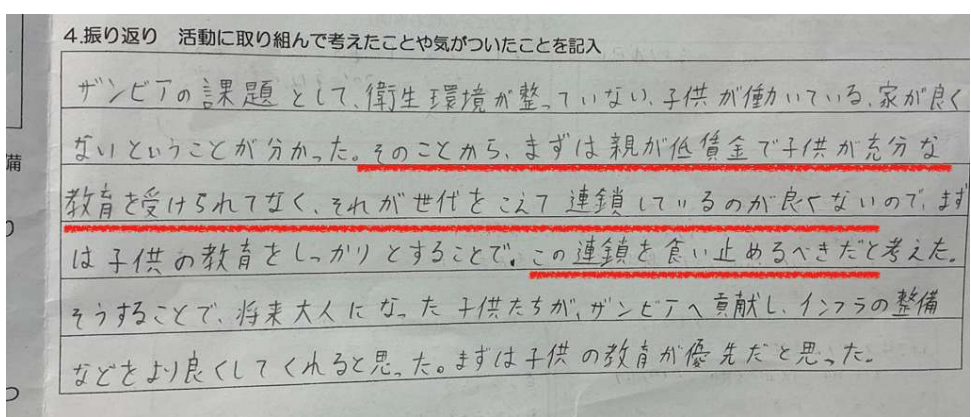 4.振り返り　活動に取り組んで考えたことや気がついたことを記入
ザンビアの課題として、衛生環境が整っていない、子供が働いている、家が良く
ないということが分かった。そのことから、まずは親が低賃金で子供が充分な
教育を受けられてなく、それが世代をこえて連鎖しているのが良くないので、まず
は子供の教育をしっかりとすることで、この連鎖を食い止めるべきだと考えた。
そうすることで、将来大人になった子供たちが、ザンビアへ貢献し、インフラの整備
などをより良くしてくれると思った。まずは子供の教育が優先だと思った。
備